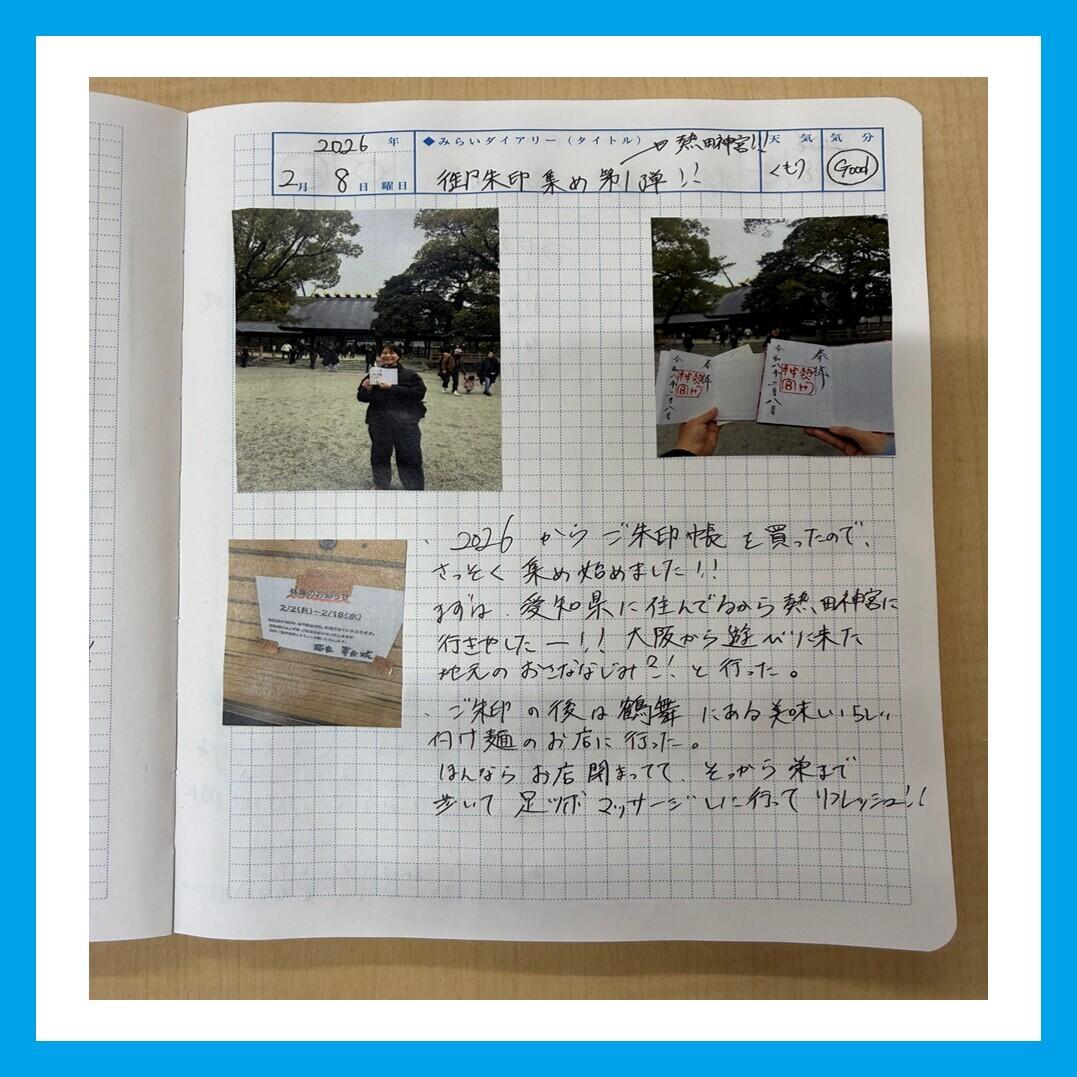 2026 年
2月 8日 曜日
◆みらいダイアリー（タイトル）
→ 熱田神宮!!!
御朱印集め 第1弾!!
天気
くもり
気分
Good
奉拝
熱田神宮
令和八年二月八日
奉拝
熱田神宮
令和八年二月八日
休業のお知らせ
2/2(月)～2/18(水)
・2026から ご朱印帳を買ったので、
さっそく 集め始めました!!
まずは、愛知県に住んでるから熱田神宮に
行きやしたー!! 大阪から遊びに来た
地元のおさななじみ?! と行った。
・ご朱印の後は鶴舞にある美味いらしい
付け麺のお店に行った。
ほんなら お店閉まってて、そっから栄まで
歩いて 足ツボマッサージしに行って リフレッシュ!!